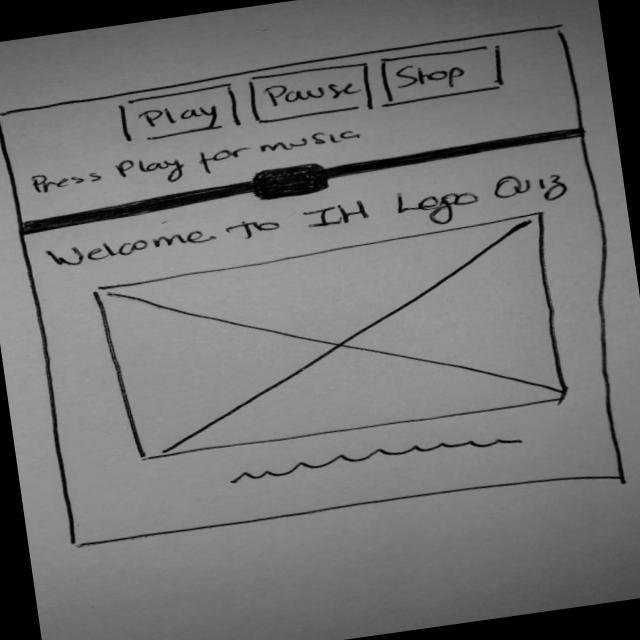 Play Pause Stop
Press Play for music
Welcome To IH Logo Quiz